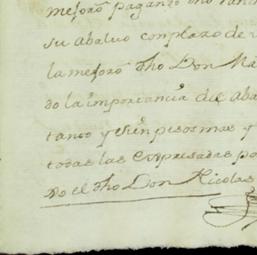 mejoro pagando
su abaluo con plazo de
la mejoro dho Don Ma
do la importancia del aba
tanto y cien pesos mas y
todas las expresadas po
Do el dho Don Nicolas